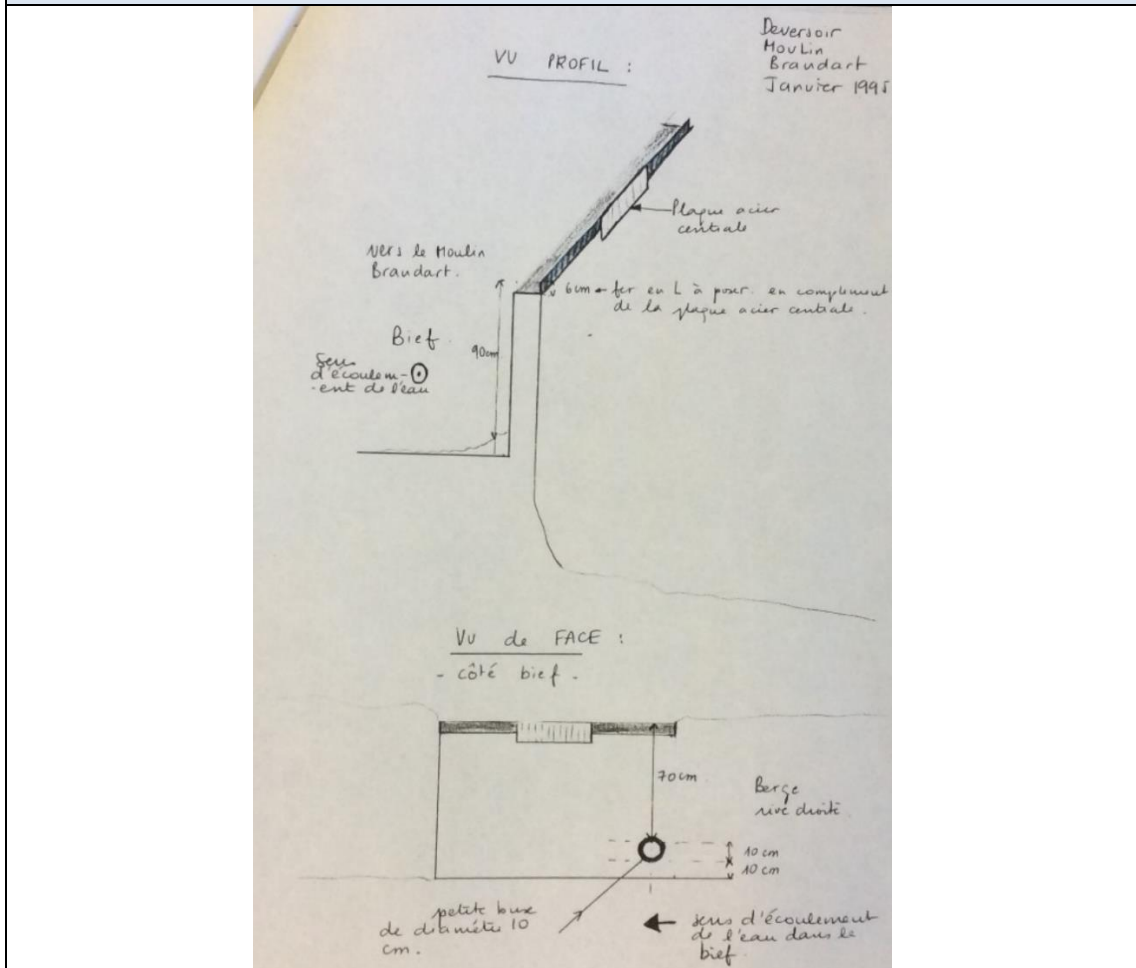 Deversoir
Moulin
Braudart
Janvier 1995
VU PROFIL :
Plaque acier
centrale
vers le Moulin
Braudart.
6cm ← fer en L à poser. en complément
de la plaque acier centrale.
Bief.
90cm
Sens
d'écoulem-
-ent de l'eau
Vu de FACE :
- côté bief -
70cm
Berge
rive droite
10 cm
10 cm
petite buse
de diamétre 10
cm.
sens d'écoulement
de l'eau dans le
bief.